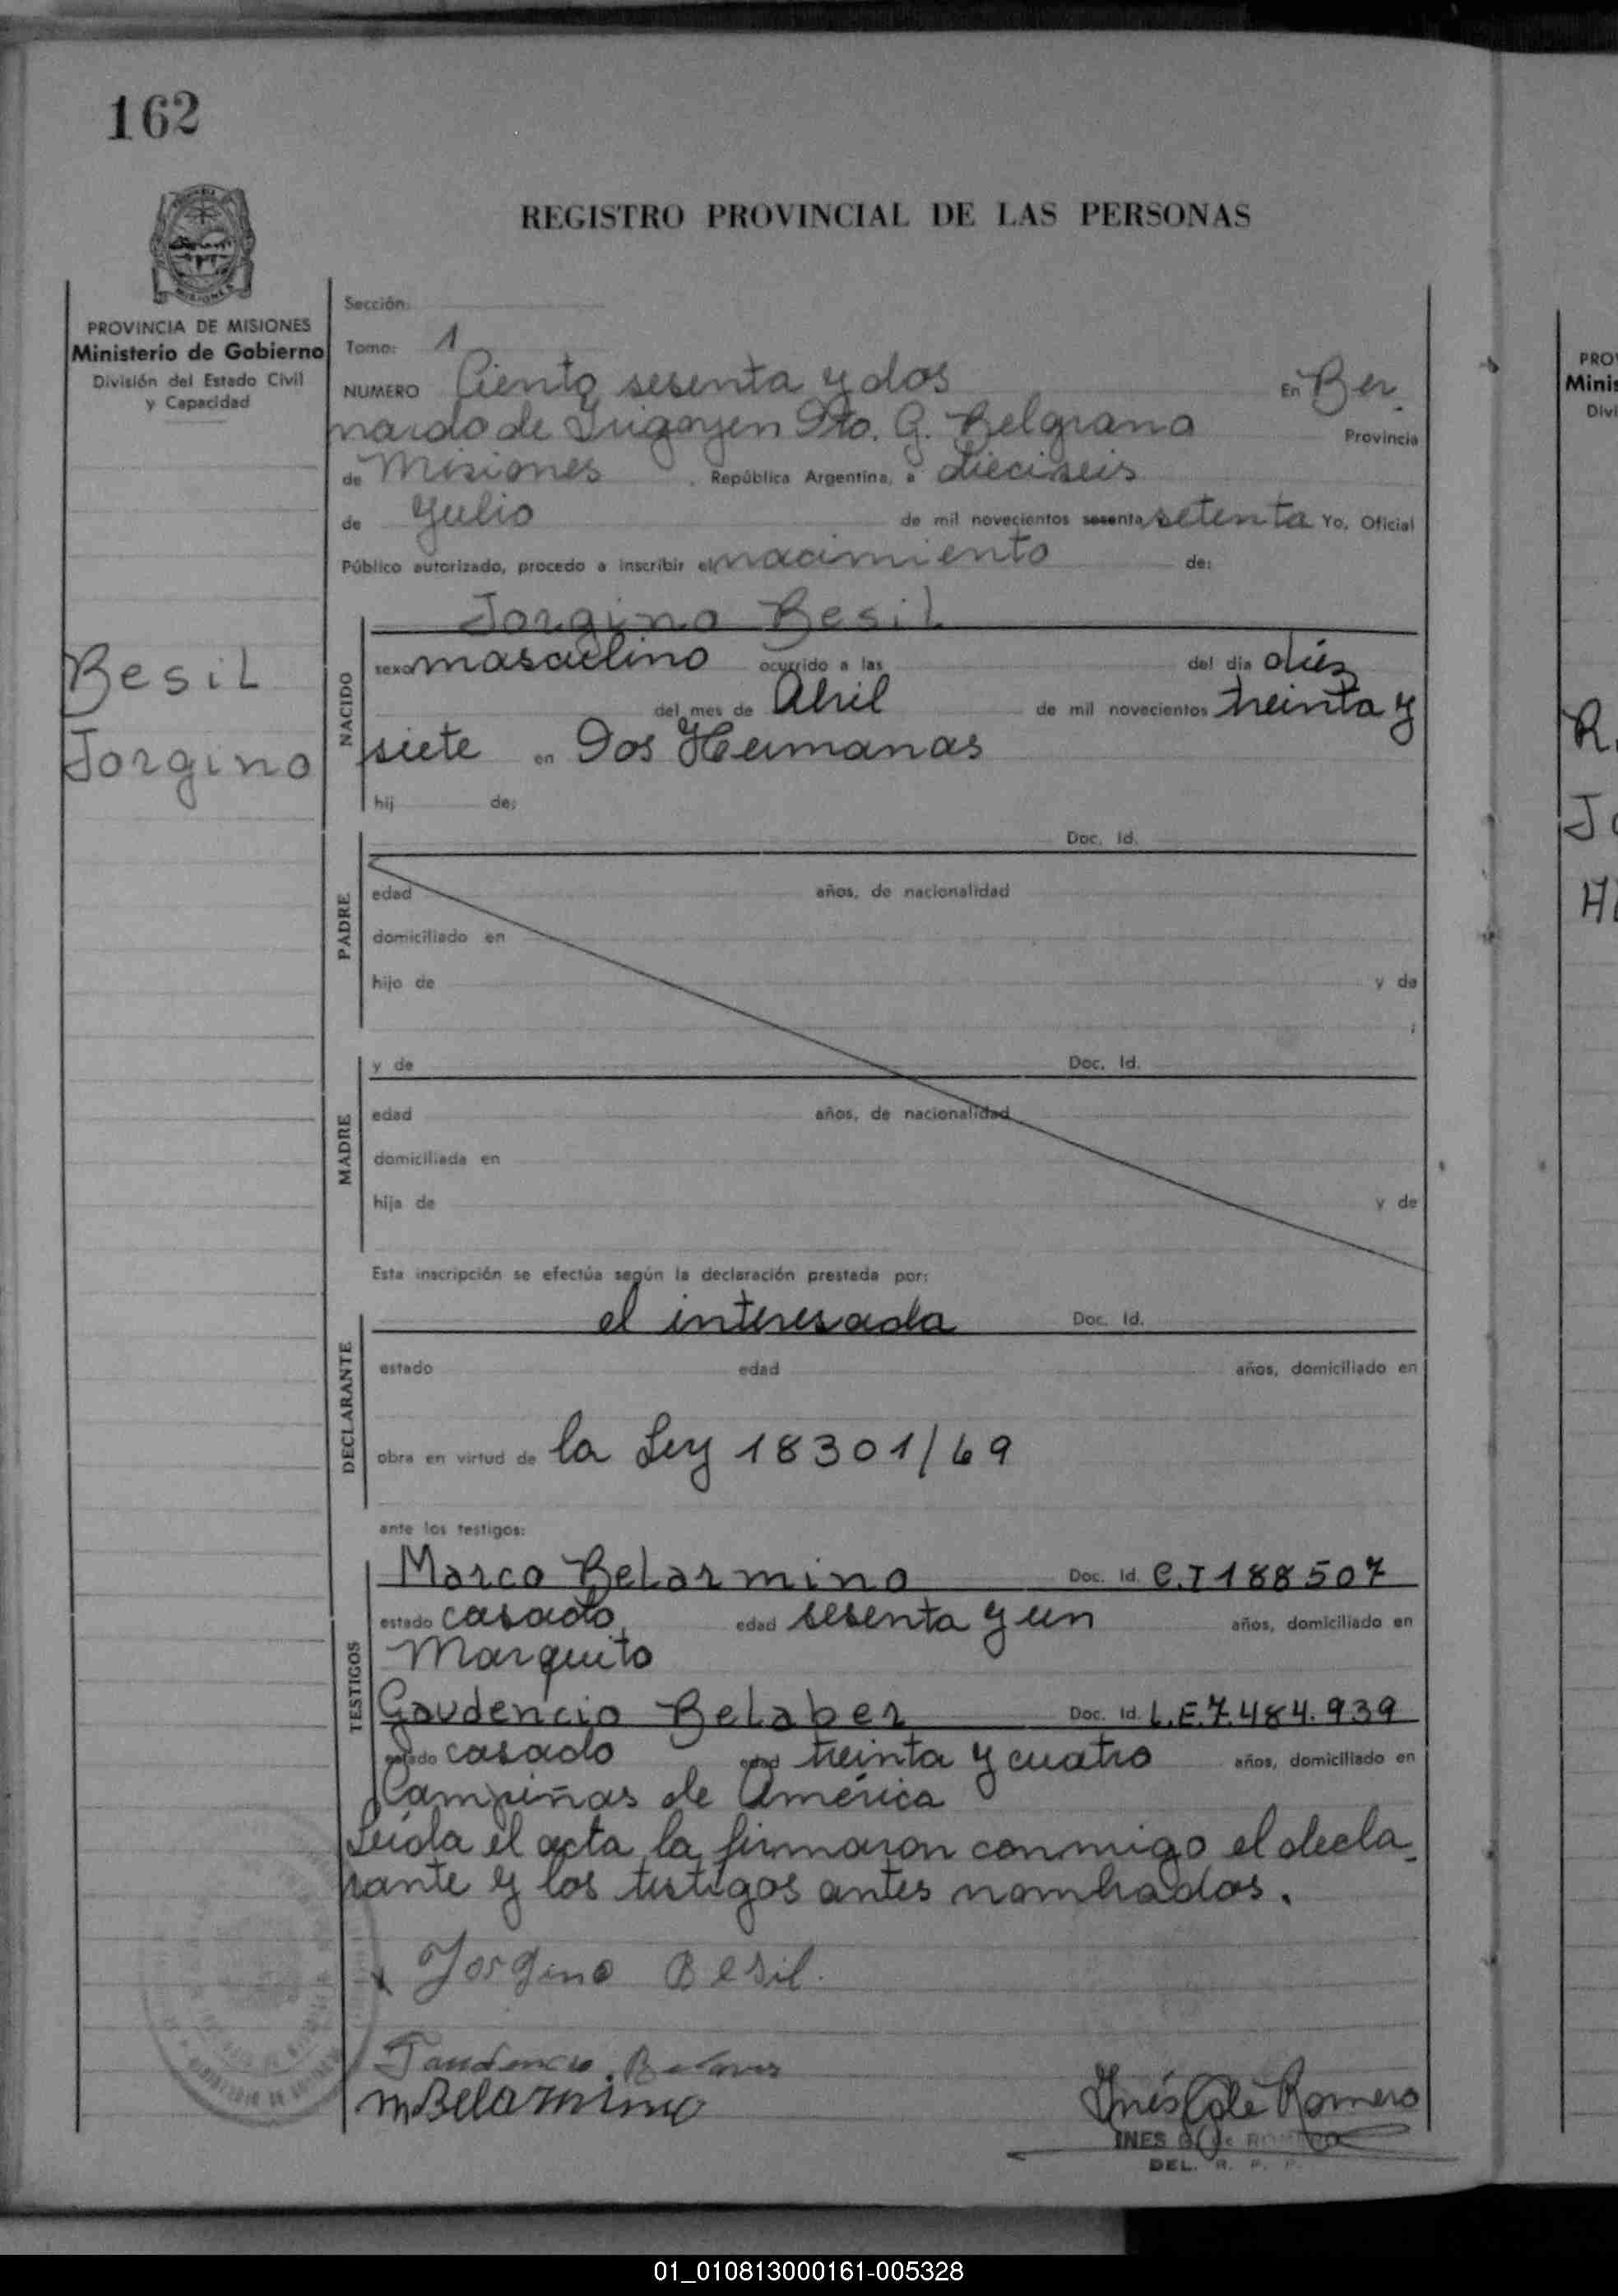 162
REGISTRO PROVINCIAL DE LAS PERSONAS
MISIONES
PROVINCIA DE MISIONES
Ministerio de Gobierno
División del Estado Civil
y Capacidad
Sección:
Tomo: 1
NUMERO Ciento sesenta y dos En Ber-
nardo de Irigoyen Dto. G. Belgrano Provincia
de Misiones, República Argentina, a dieciseis
de Julio de mil novecientos sesenta setenta Yo, Oficial
Público autorizado, procedo a inscribir el nacimiento de:
Besil
Jorgino
NACIDO
Jorgino Besil
sexo masculino ocurrido a las del día diéz
del mes de Abril de mil novecientos treinta y
siete en Dos Hermanas
hij de:
PADRE
Doc. Id.
edad años, de nacionalidad
domiciliado en
hijo de y de
;
MADRE
y de Doc. Id.
edad años, de nacionalidad
domiciliada en
hija de y de
Esta inscripción se efectúa según la declaración prestada por:
DECLARANTE
el interesada Doc. Id.
estado edad años, domiciliado en
obra en virtud de la Ley 18301/69
ante los testigos:
TESTIGOS
Marco Belarmino Doc. Id. C.I 188507
estado casado edad sesenta y un años, domiciliado en
Marquito
Gaudencio Belaber Doc. Id. L.E.7.484.939
estado casado edad treinta y cuatro años, domiciliado en
Campiñas de América
Leída el acta la firmaron conmigo el decla-
rante y los testigos antes nombrados.
Jorgino Besil.
Gaudencio
M Belarmino
Inés G de Romero
INES G. de ROMERO
DEL. R. P. P.
PRO
Minis
Divi
R.
Jo
01_010813000161-005328